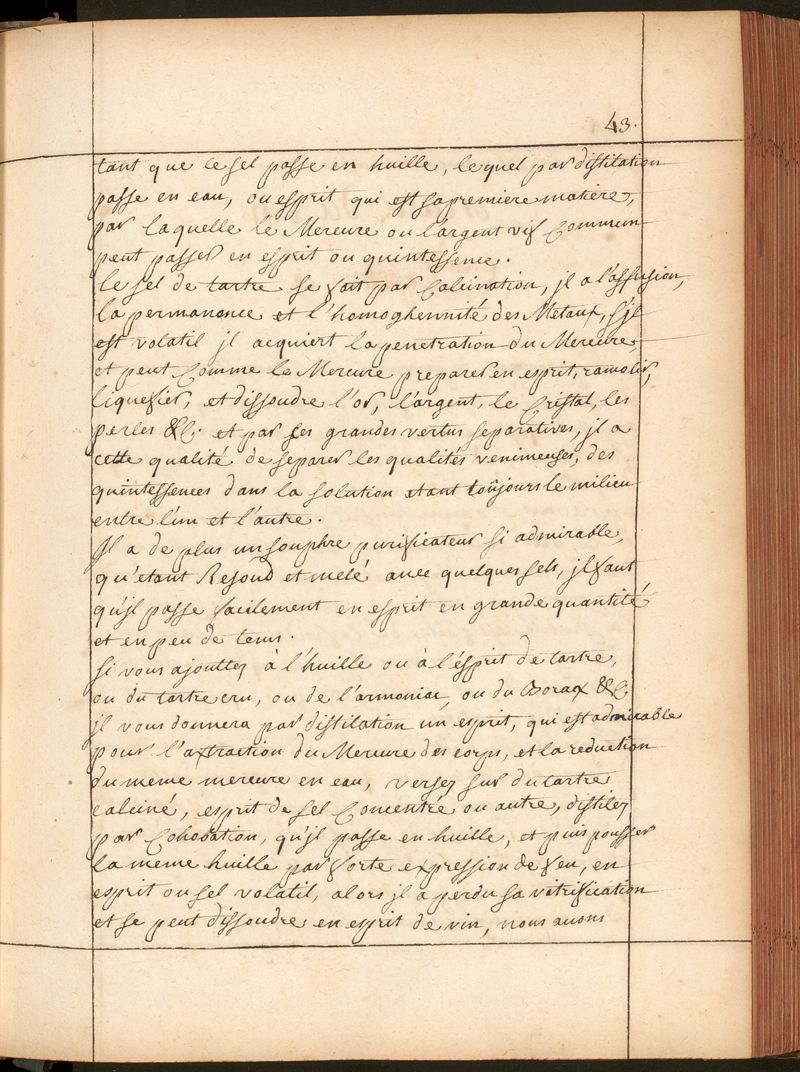 43.
tant que le sel passe en huille, lequel par distilation
passe en eau, ou esprit qui est sa premiere matiere,
par laquelle le Mercure ou l'argent vif Commun
peut passer en esprit ou quintessence.
le sel de tartre se fait par Calcination, jl a l'assusion,
la permanence et l'homoghennité des Metaux, s'jl
est volatil jl acquiert la penetration du Mercure,
et peut Comme le Mercure preparer en esprit, ramolir,
liquefier, et dissoudre l'or, l'argent, le Cristal, les
perles &C. et par ses grandes vertus separatives, jl a
cette qualité de separer les qualités venimeuses, des
quintessences dans la solution etant toûjours le milieu
entre l'un et l'autre.
Jl a de plus un souphre purificateur si admirable,
qu'etant Resoud et melé avec quelques sels, jl faut
qu'jl passe facilement en esprit en grande quantité
et en peu de tems.
Si vous ajouttez à l'huille ou à l'ésprit de tartre,
ou du tartre cru, ou de l'armoniac, ou du Borax &C.
jl vous donnera par distilation un esprit, qui est admirable
pour l'axtraction du Mercure des corps, et la reduction
du meme mercure en eau, versez sur du tartre
calciné, esprit de sel Concentré ou autre, distilez
par Cohobation, qu'jl passe en huille, et puis pousser
la meme huille par forte expression de feu, en
esprit ou sel volatil, alors jl a perdu sa vitrification
et se peut dissoudre en esprit de vin, nous avons